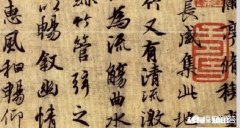 蘭亭脩稧
長咸集此
竹又有清流激
為流觴曲水
絲竹管弦之
以暢敘幽情
惠風和暢仰